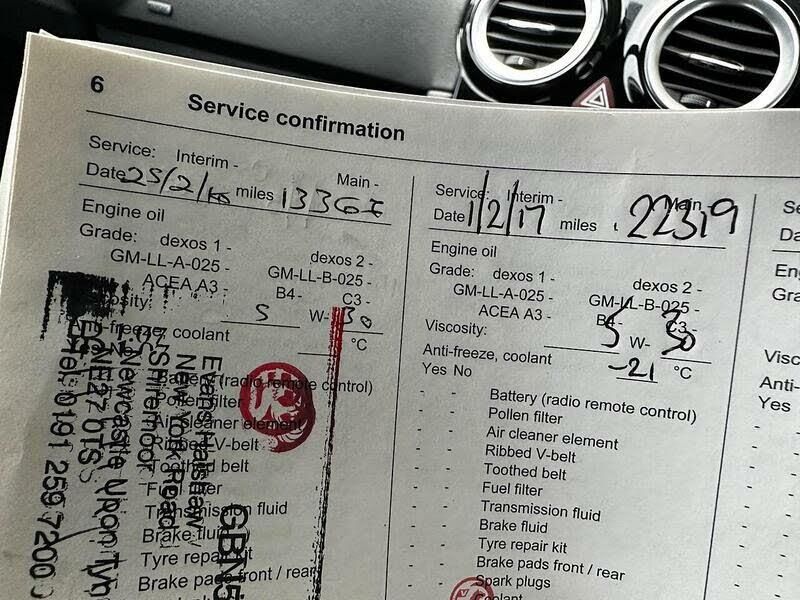 6
Service confirmation
Service: Interim -
Main -
Date 25/2/16 miles
Engine oil
Grade: dexos 1 -
dexos 2 -
GM-LL-A-025 -
GM-LL-B-025 -
ACEA A3 -
B4-
C3 -
5 W- 30
coolant
°C
Battery (radio remote control)
Pollen filter
Air cleaner element
Ribbed V-belt
Toothed belt
Fuel filter
Transmission fluid
Brake fluid
Tyre repair kit
Brake pads front / rear
Evans Halshaw
New York Road
Shiremoor
Newcastle Upon Tyn
NE27 0TS
Tel: 0191 259 7200
GBN5
Service: Interim -
Main -
Date 1/2/17 miles 22319
Engine oil
Grade: dexos 1 -
dexos 2 -
GM-LL-A-025 -
GM-LL-B-025 -
ACEA A3 -
B4-
C3 -
Viscosity: 5 W- 30
Anti-freeze, coolant -21 °C
Yes No
- - Battery (radio remote control)
- - Pollen filter
- - Air cleaner element
- - Ribbed V-belt
- - Toothed belt
- - Fuel filter
- - Transmission fluid
- - Brake fluid
- - Tyre repair kit
- - Brake pads front / rear
- - Spark plugs
Coolant
Se
Da
En
Gra
Visc
Anti-
Yes